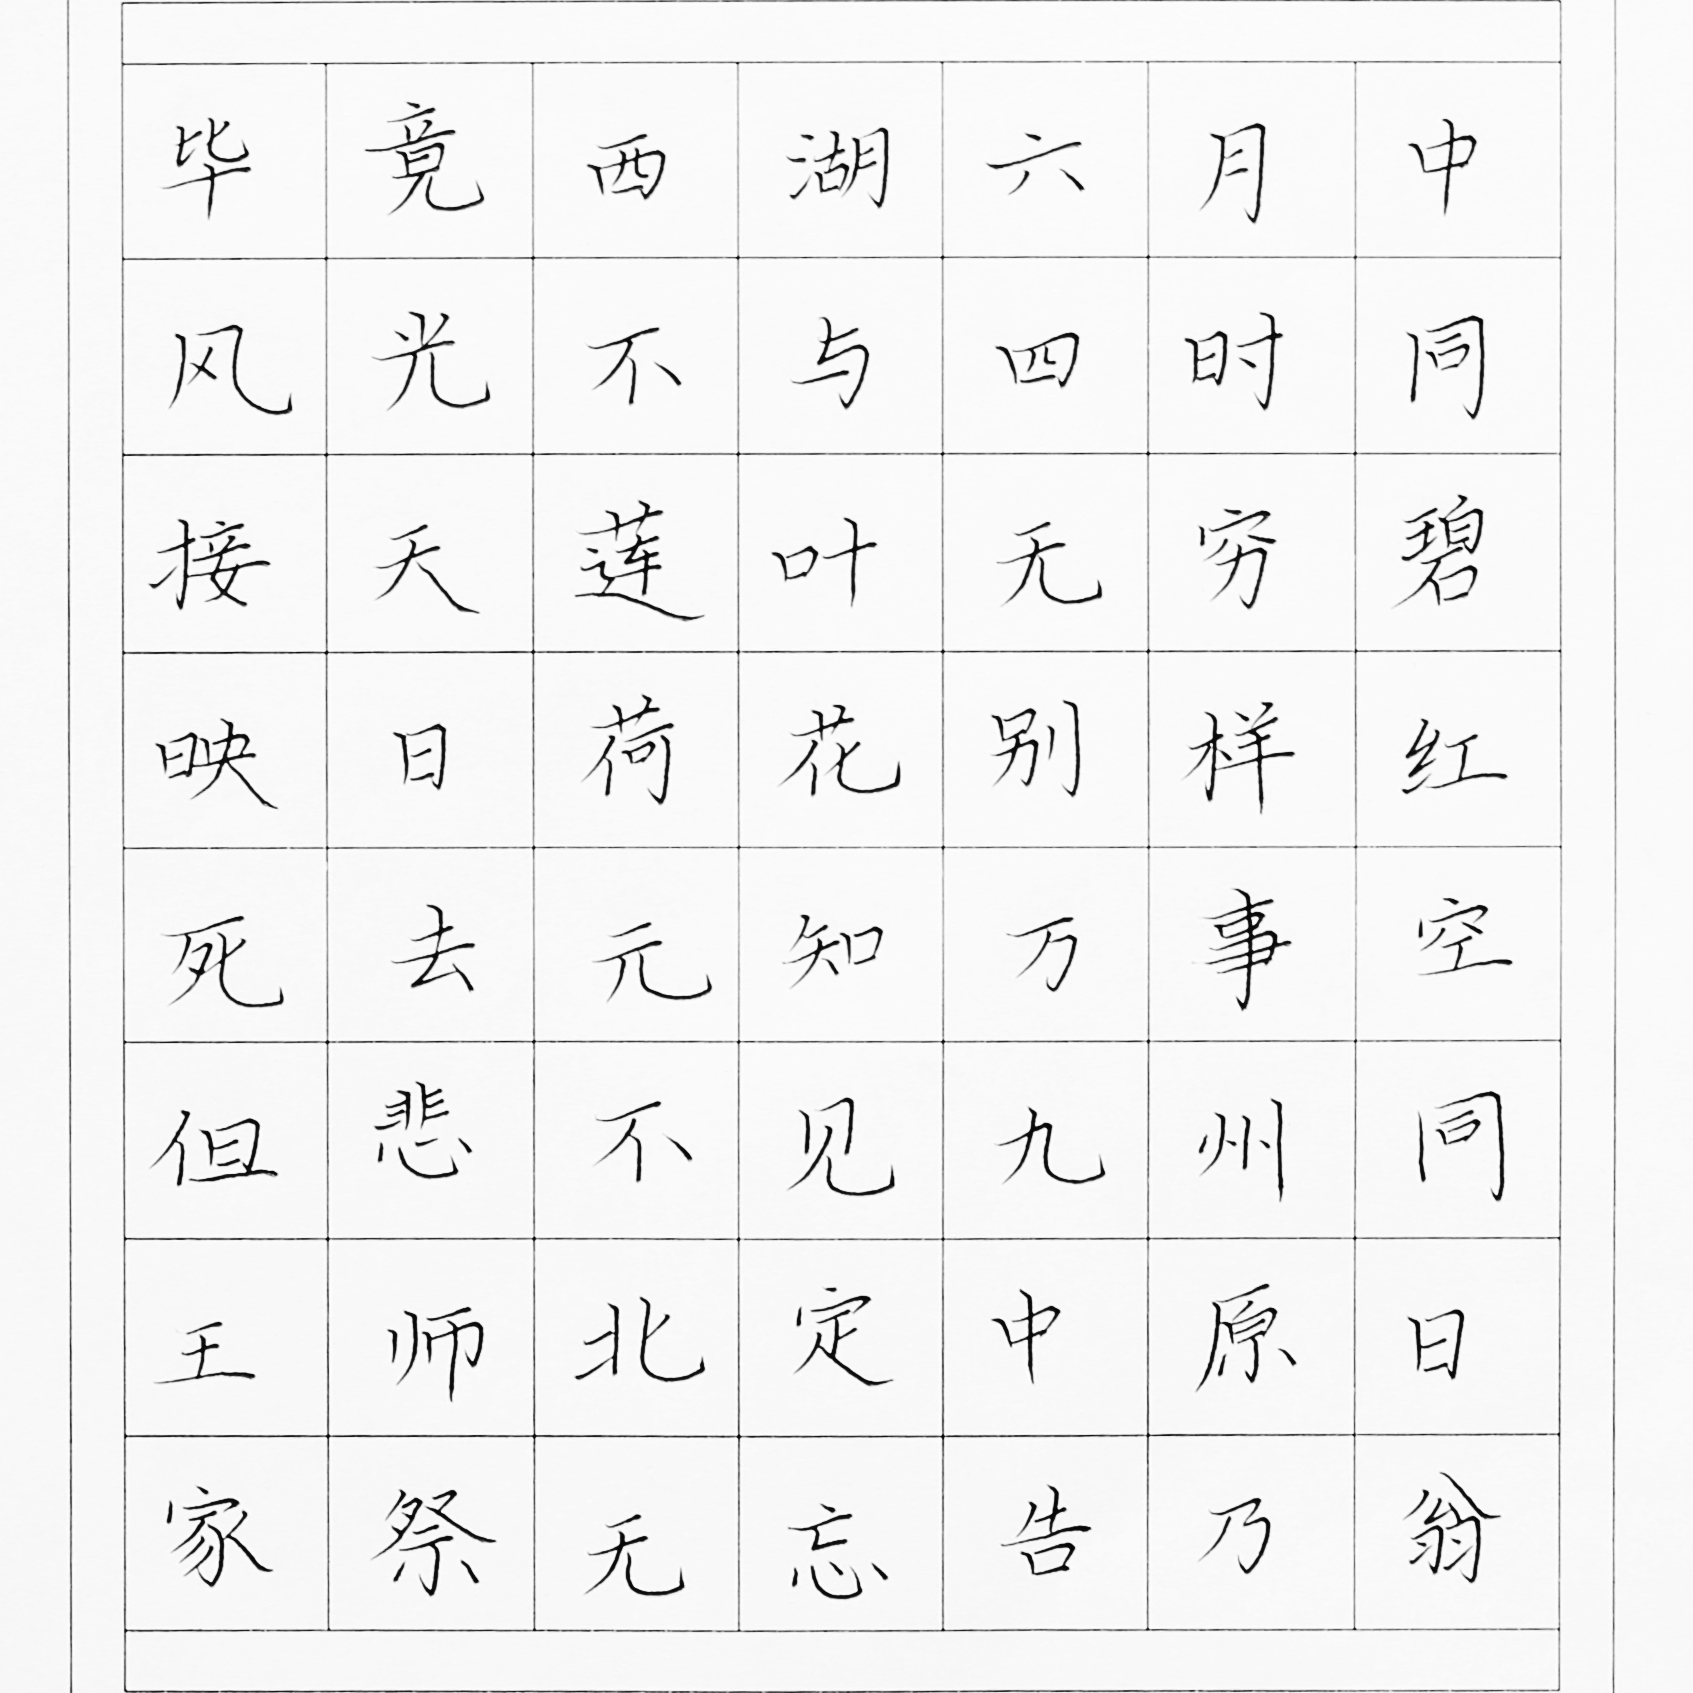 毕竟西湖六月中
风光不与四时同
接天莲叶无穷碧
映日荷花别样红
死去元知万事空
但悲不见九州同
王师北定中原日
家祭无忘告乃翁